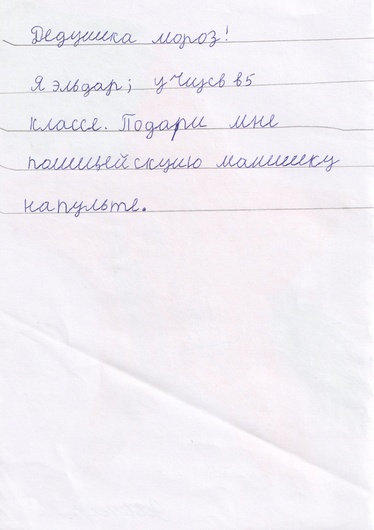 Дедушка мороз!
Я эльдар; учиусв в5
классе. Подари мне
полицейскуию машинку
на пульте.